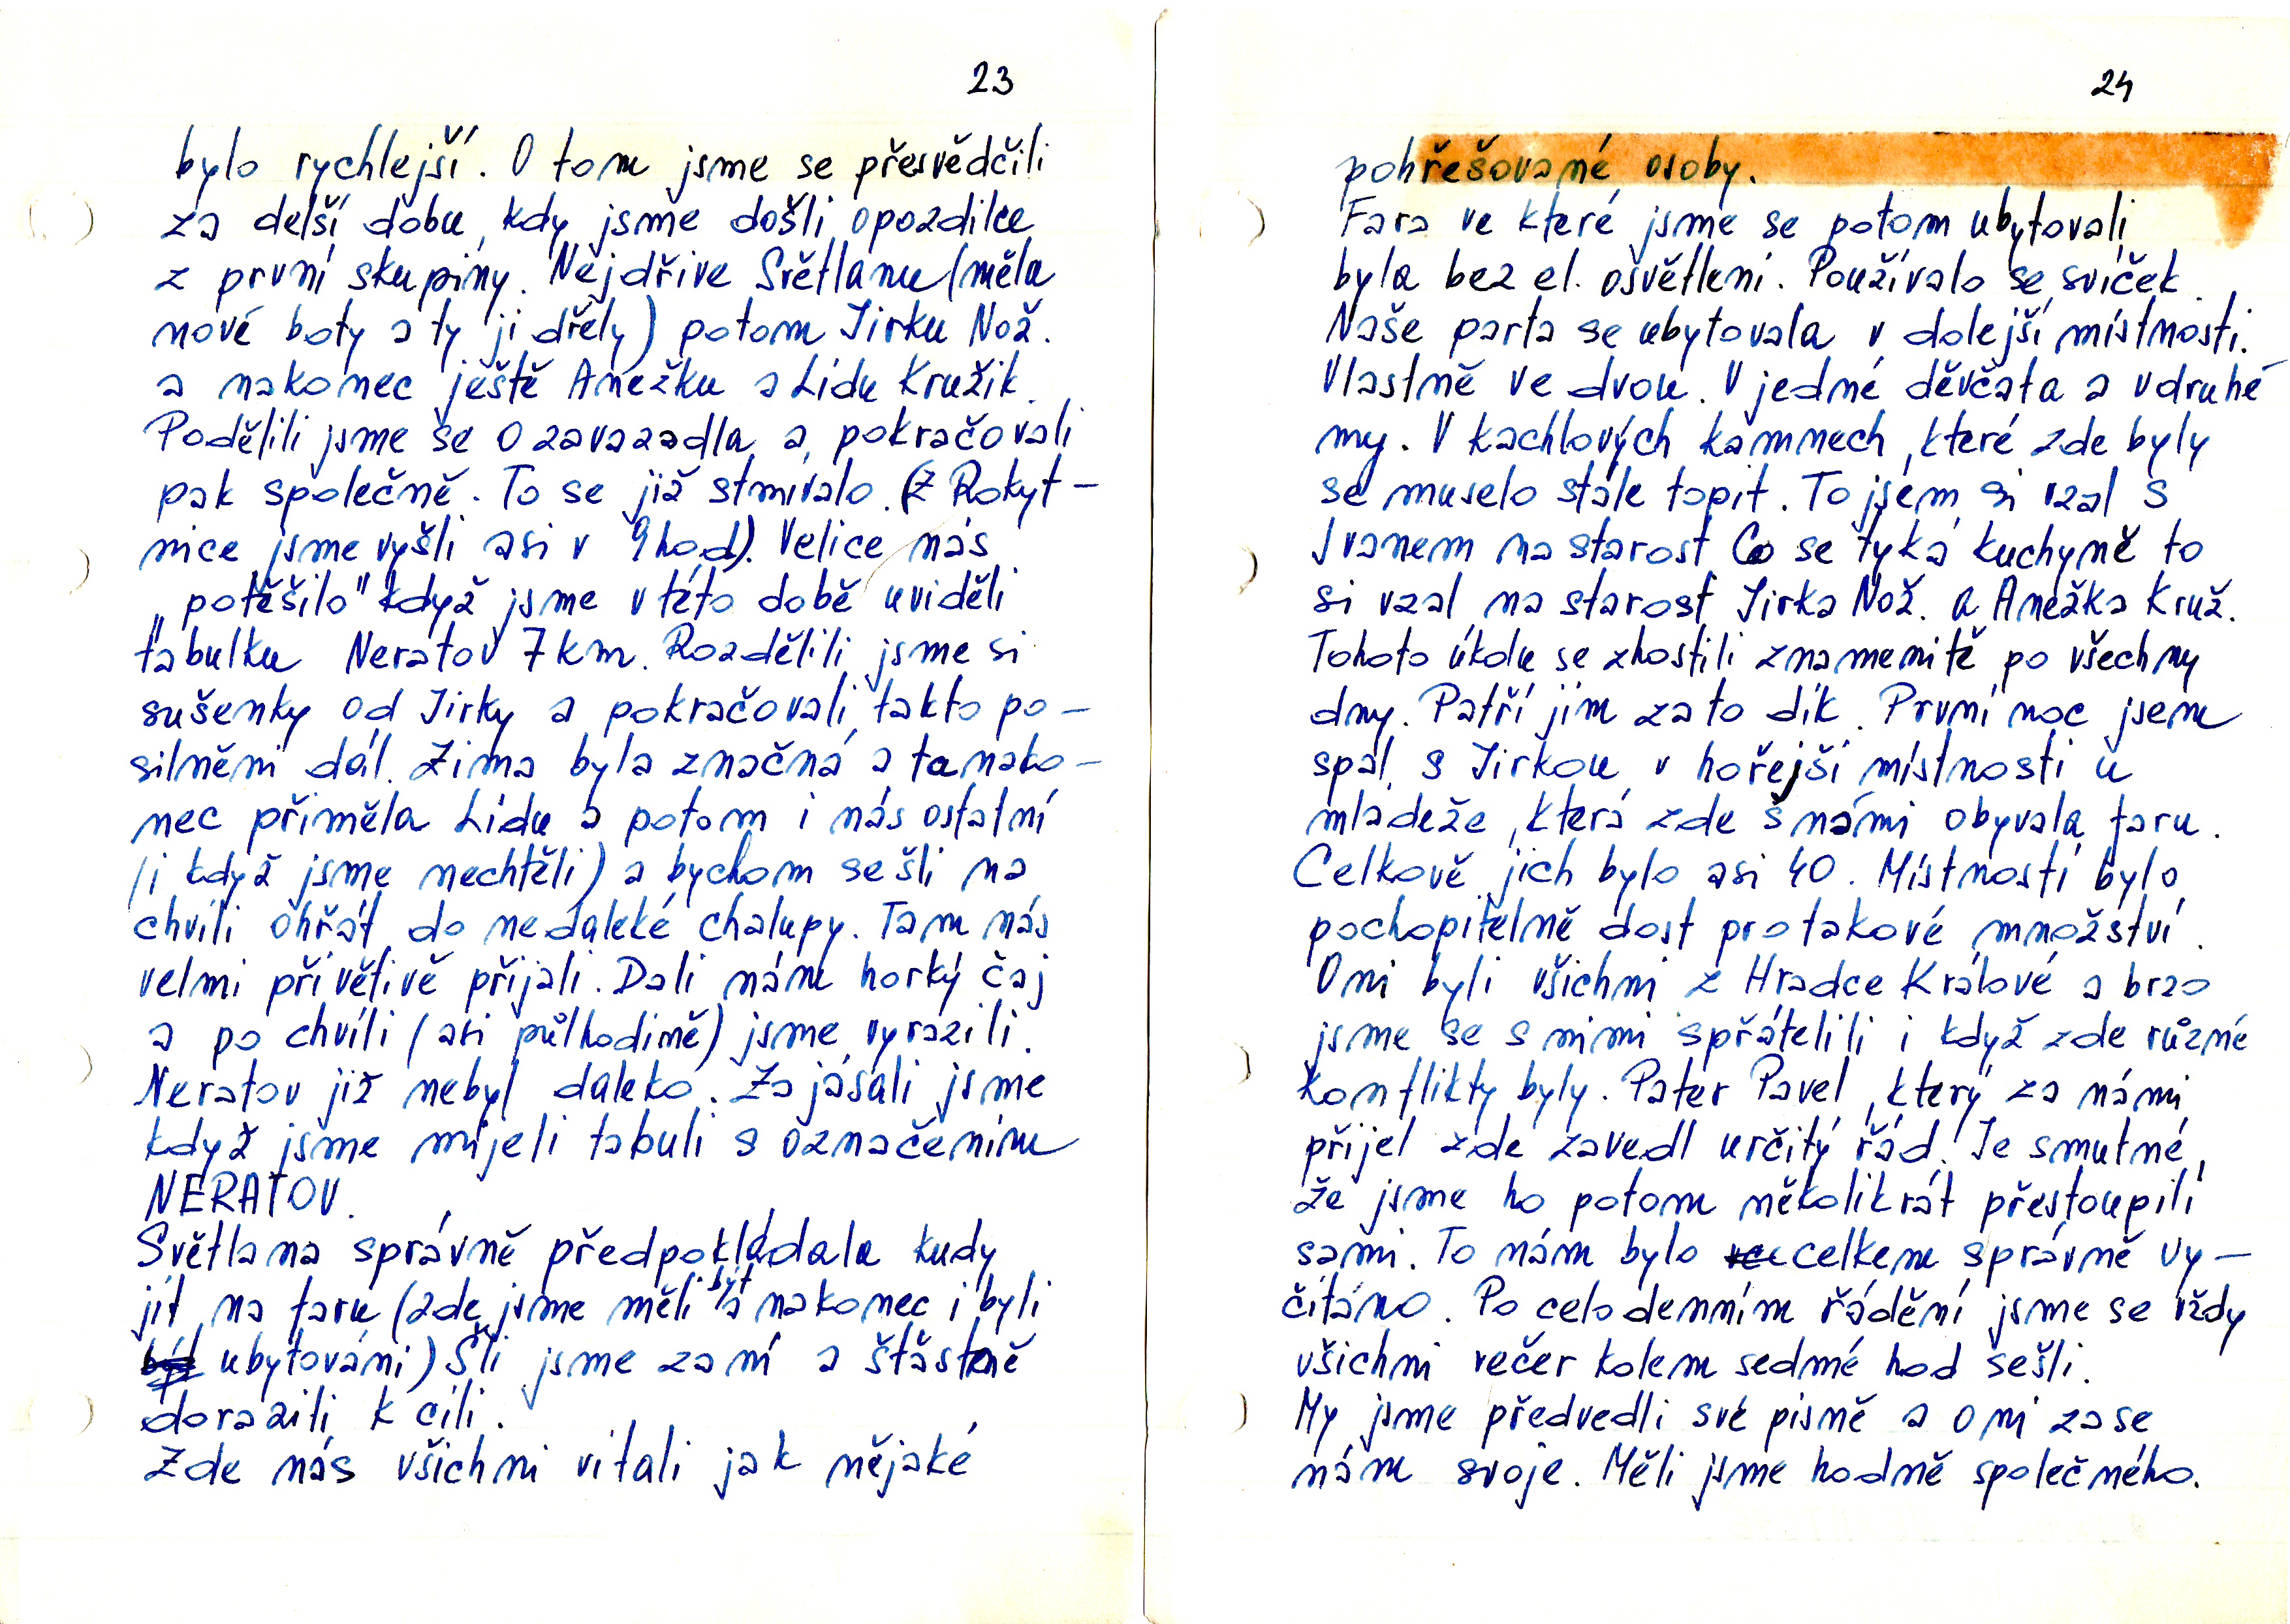 23
bylo rychlejší. O tom jsme se přesvědčili
za delší dobu, kdy jsme došli opozdilce
z první skupiny. Nejdříve Světlanu (měla
nové boty a ty ji dřely) potom Jirku Nož.
a nakonec ještě Anežku a Lídu Kružik.
Podělili jsme se o zavazadla a pokračovali
pak společně. To se již stmívalo. (Z Rokyt-
nice jsme vyšli asi v 9 hod). Velice nás
„potěšilo" když jsme v této době uviděli
tabulku Neratov 7 km. Rozdělili jsme si
sušenky od Jirky a pokračovali takto po-
silněni dál. Zima byla značná a ta nako-
nec přiměla Lídu a potom i nás ostatní
(i když jsme nechtěli) a bychom se šli na
chvíli ohřát do nedaleké chalupy. Tam nás
velmi přívětivě přijali. Dali nám horký čaj
a po chvíli (asi půlhodině) jsme vyrazili.
Neratov již nebyl daleko. Zajásali jsme
když jsme míjeli tabuli s označením
NERATOV.
Světlana správně předpokládala kudy
jít na faru (zde jsme měli být a nakonec i byli
být ubytováni) Šli jsme za ní a šťastně
dorazili k cíli.
Zde nás všichni vítali jak nějaké
24
pohřešované osoby.
Fara ve které jsme se potom ubytovali
byla bez el. osvětlení. Používalo se svíček.
Naše parta se ubytovala v dolejší místnosti.
Vlastně ve dvou. V jedné děvčata a v druhé
my. V kachlových kamnech, které zde byly
se muselo stále topit. To jsem si vzal s
Ivanem na starost Co se týká kuchyně to
si vzal na starost Jirka Nož. a Anežka Kruž.
Tohoto úkolu se zhostili znamenitě po všechny
dny. Patří jim za to dík. První noc jsem
spal s Jirkou v hořejší místnosti u
mládeže, která zde s námi obyvala faru.
Celkově jich bylo asi 40. Místností bylo
pochopitelně dost pro takové množství.
Oni byli všichni z Hradce Králové a brzo
jsme se s nimi spřátelili i když zde různé
konflikty byly. Pater Pavel, který za námi
přijel zde zavedl určitý řád. Je smutné,
že jsme ho potom několikrát přestoupili
sami. To nám bylo celkem správně vy-
čítáno. Po celodenním řádění jsme se vždy
všichni večer kolem sedmé hod sešli.
My jsme předvedli své písně a oni zase
nám svoje. Měli jsme hodně společného.